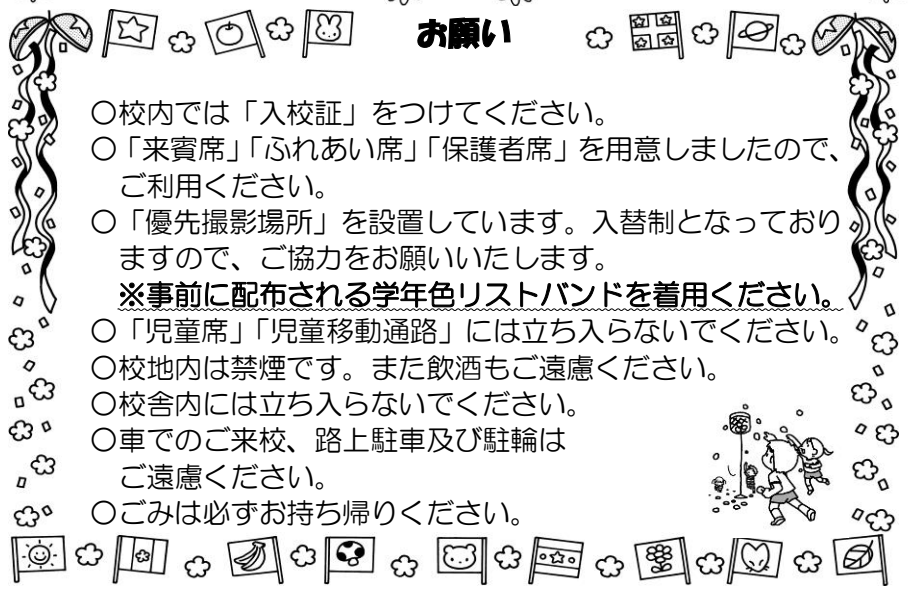 お願い
〇校内では「入校証」をつけてください。
〇「来賓席」「ふれあい席」「保護者席」を用意しましたので、
ご利用ください。
〇「優先撮影場所」を設置しています。入替制となっており
ますので、ご協力をお願いいたします。
※事前に配布される学年色リストバンドを着用ください。
〇「児童席」「児童移動通路」には立ち入らないでください。
〇校地内は禁煙です。また飲酒もご遠慮ください。
〇校舎内には立ち入らないでください。
〇車でのご来校、路上駐車及び駐輪は
ご遠慮ください。
〇ごみは必ずお持ち帰りください。